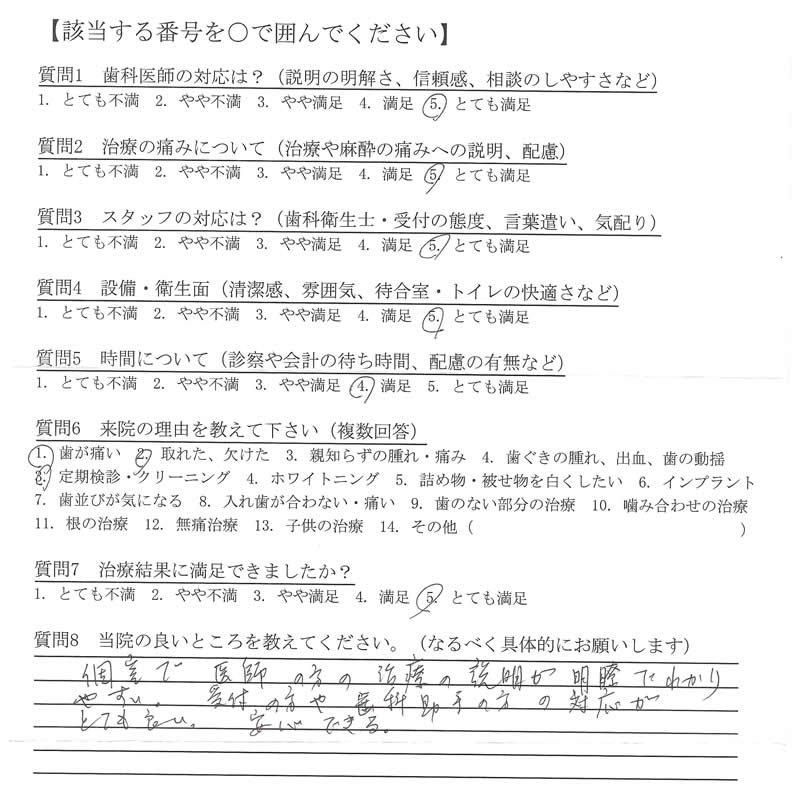 【該当する番号を○で囲んでください】
質問1 歯科医師の対応は？（説明の明解さ、信頼感、相談のしやすさなど）
1. とても不満 2. やや不満 3. やや満足 4. 満足 5. とても満足
質問2 治療の痛みについて（治療や麻酔の痛みへの説明、配慮）
1. とても不満 2. やや不満 3. やや満足 4. 満足 5. とても満足
質問3 スタッフの対応は？（歯科衛生士・受付の態度、言葉遣い、気配り）
1. とても不満 2. やや不満 3. やや満足 4. 満足 5. とても満足
質問4 設備・衛生面（清潔感、雰囲気、待合室・トイレの快適さなど）
1. とても不満 2. やや不満 3. やや満足 4. 満足 5. とても満足
質問5 時間について（診察や会計の待ち時間、配慮の有無など）
1. とても不満 2. やや不満 3. やや満足 4. 満足 5. とても満足
質問6 来院の理由を教えて下さい（複数回答）
1. 歯が痛い 2. 取れた、欠けた 3. 親知らずの腫れ・痛み 4. 歯ぐきの腫れ、出血、歯の動揺
3. 定期検診・クリーニング 4. ホワイトニング 5. 詰め物・被せ物を白くしたい 6. インプラント
7. 歯並びが気になる 8. 入れ歯が合わない・痛い 9. 歯のない部分の治療 10. 噛み合わせの治療
11. 根の治療 12. 無痛治療 13. 子供の治療 14. その他（ ）
質問7 治療結果に満足できましたか？
1. とても不満 2. やや不満 3. やや満足 4. 満足 5. とても満足
質問8 当院の良いところを教えてください。（なるべく具体的にお願いします）
個室で 医師の方の治療の説明が明瞭でわかり
やすい。 受付の方や歯科助手の方の対応が
とても良い。 安心できる。